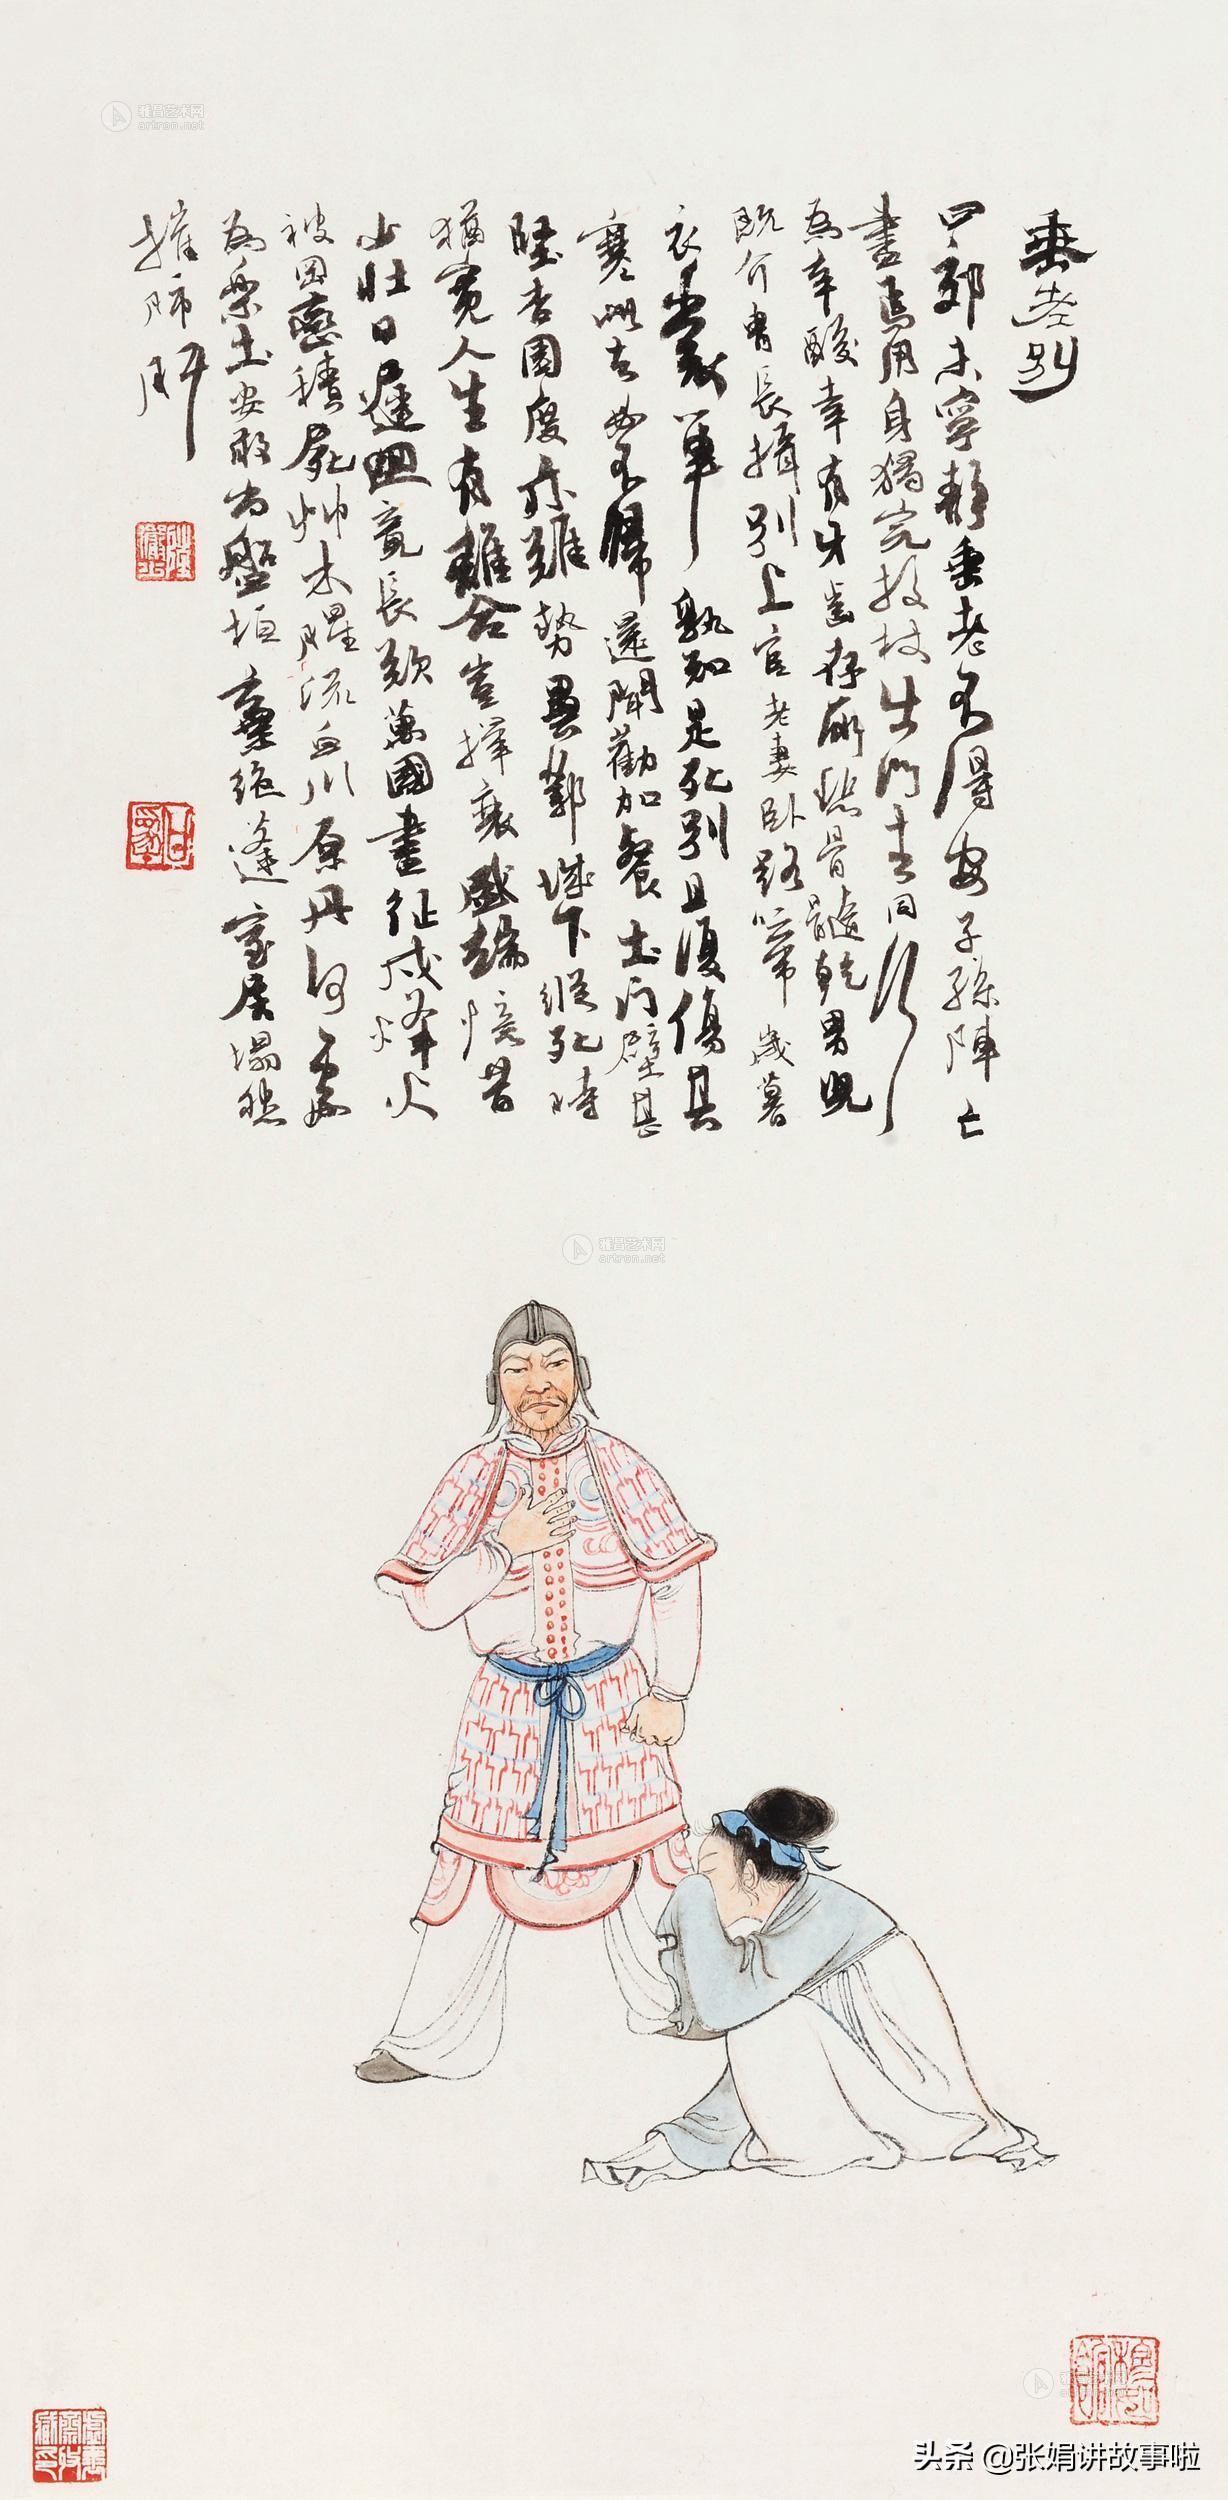 垂老別
四郊未寧靜垂老不得安子孫陣亡
盡焉用身獨完投杖出門去同行
為辛酸幸有牙齒存所悲骨髓乾男兒
既介胄長揖別上官老妻臥路啼歲暮
衣裳單孰知是死別且復傷其
寒此去必不歸還聞勸加餐土門壁甚
堅杏園度亦難勢異鄴城下縱死時
猶寬人生有離合豈擇衰盛端憶昔
少壯日遲迴竟長歎萬國盡征戍烽火
被岡巒積屍艸木腥流血川原丹何鄉
為樂土安敢尚盤桓棄絕蓬室居塌然
摧肺肝
雅昌艺术网
artron.net
雅昌艺术网
artron.net
头条 @张娟讲故事啦